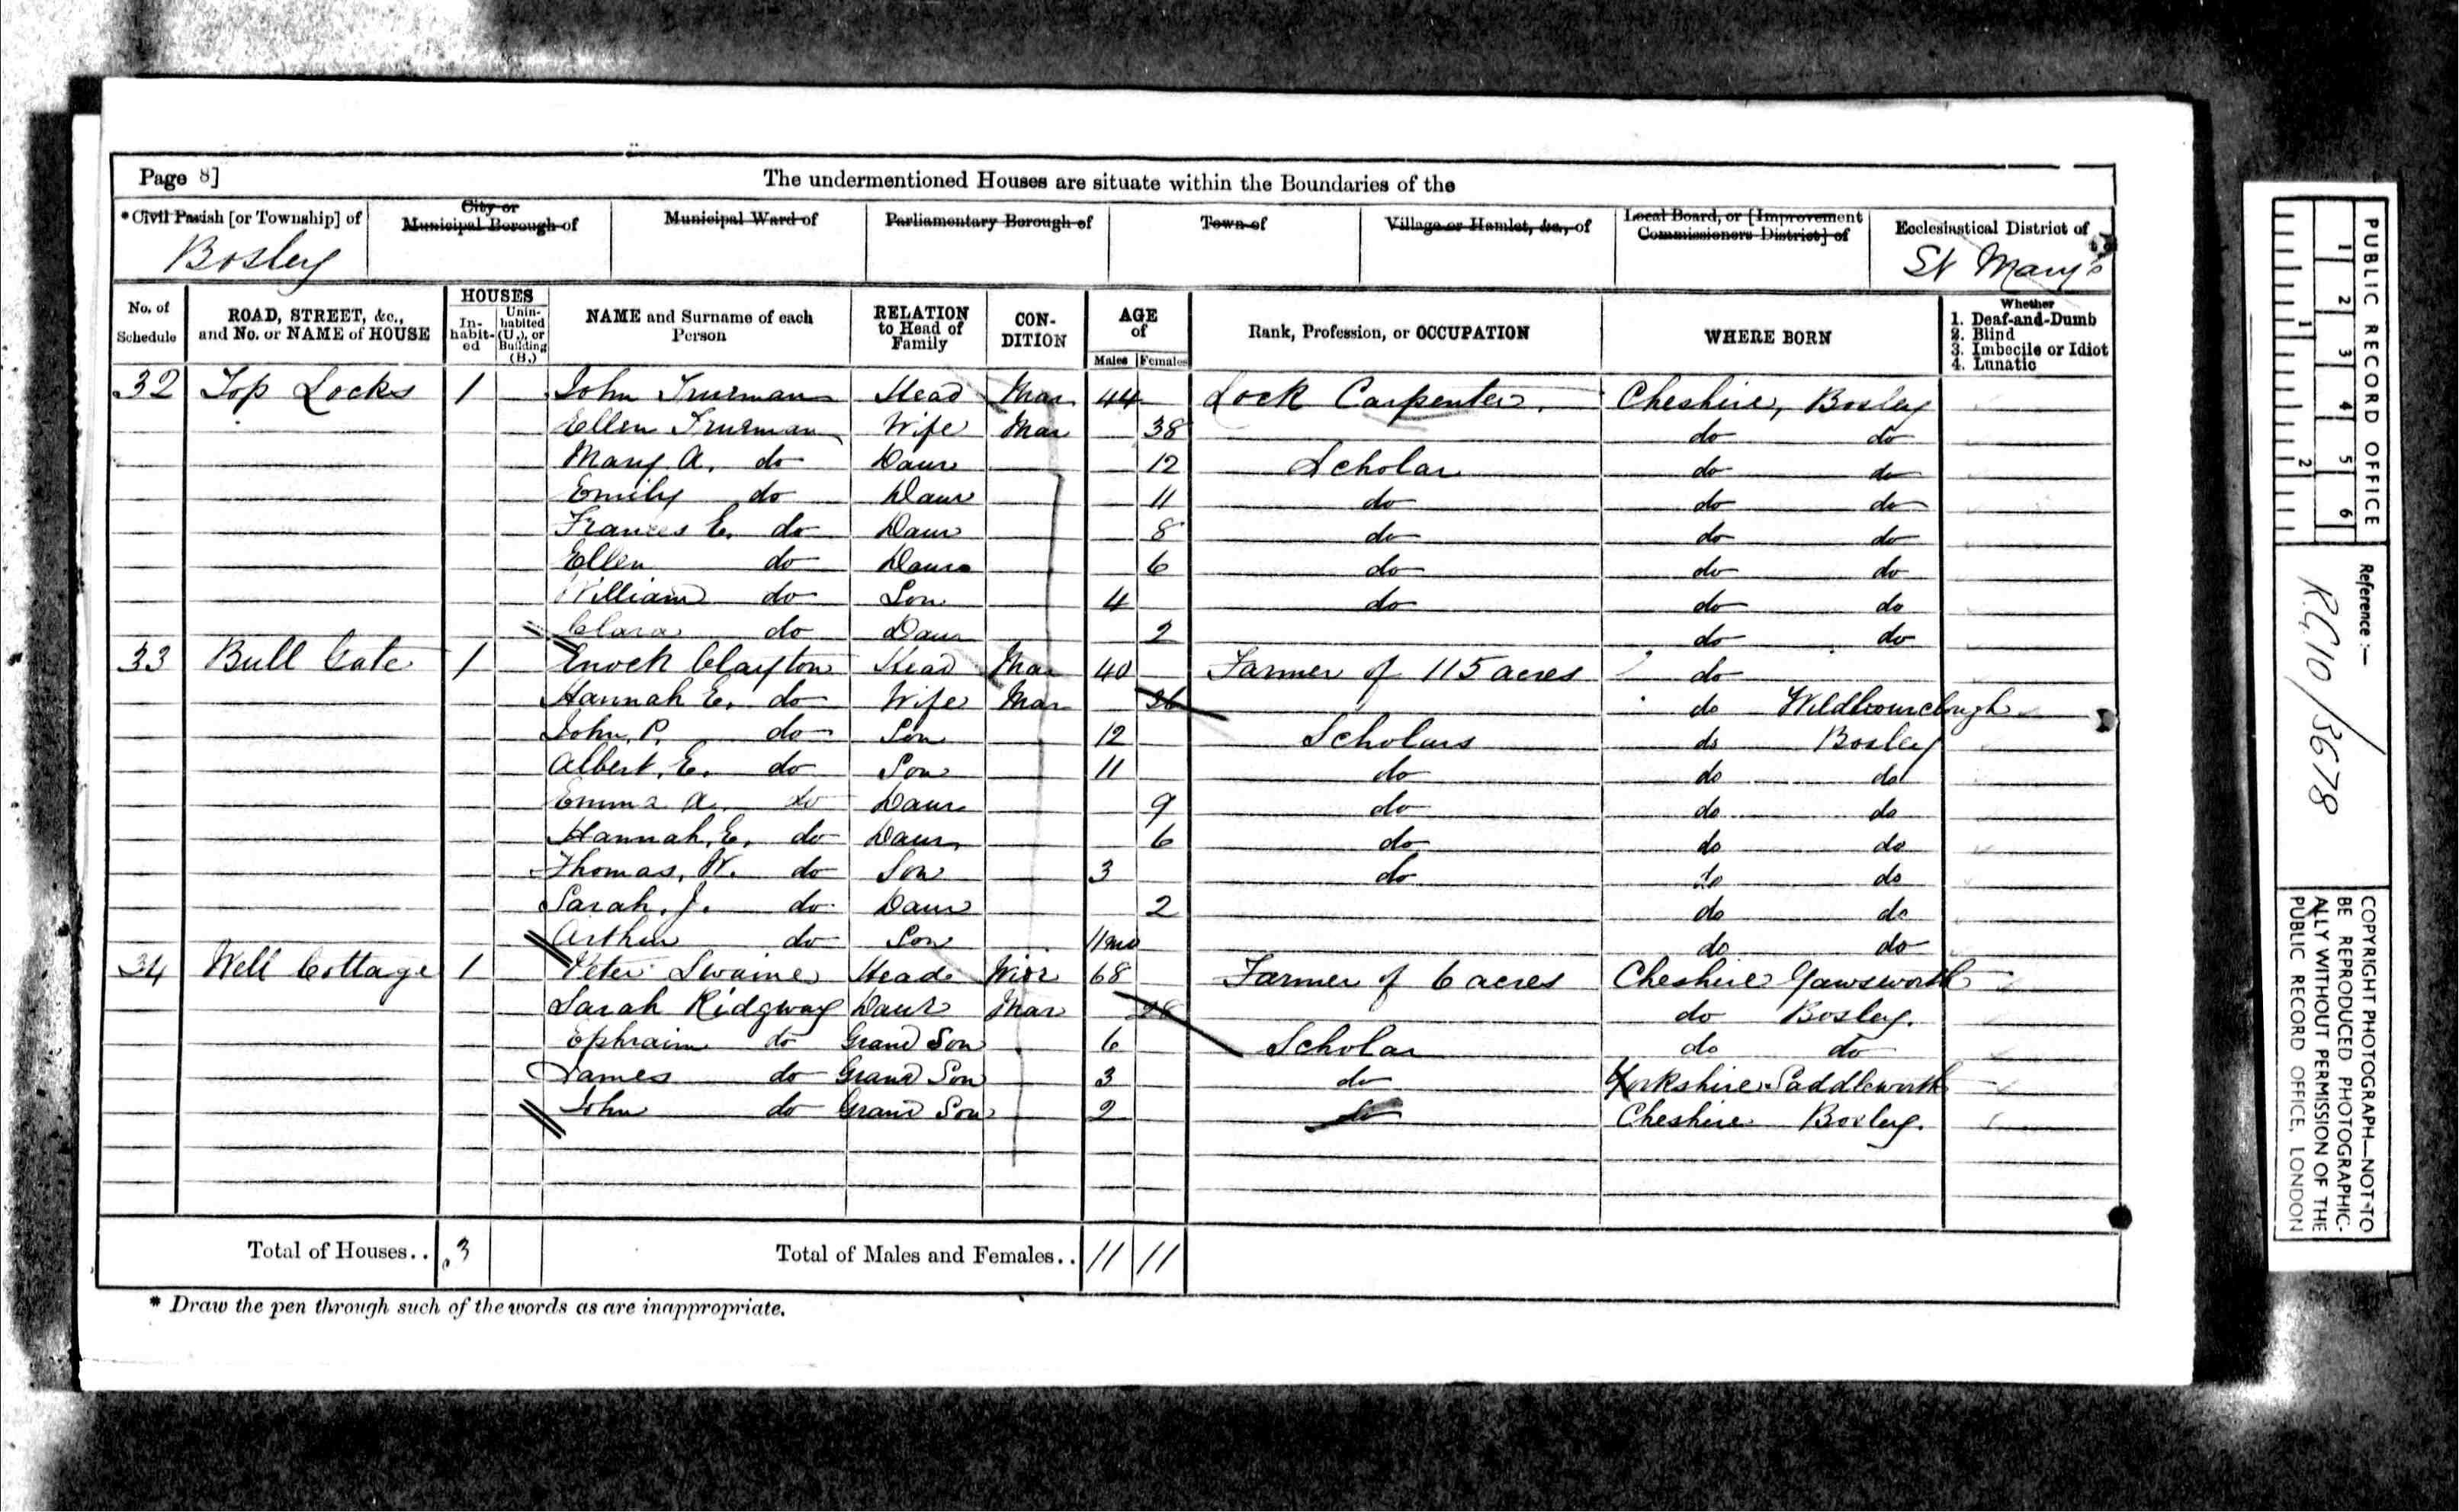 Page 8]
The undermentioned Houses are situate within the Boundaries of the
*Civil Parish [or Township] of
City or Municipal Borough of
Municipal Ward of
Parliamentary Borough of
Town of
Village or Hamlet, &c., of
Local Board, or [Improvement Commissioners District] of
Ecclesiastical District of
Bosley
St Mary's
No. of Schedule
ROAD, STREET, &c., and No. or NAME of HOUSE
HOUSES
In-habit-ed
Unin-habited (U.), or Building (B.)
NAME and Surname of each Person
RELATION to Head of Family
CON-DITION
AGE of
Males Females
Rank, Profession, or OCCUPATION
WHERE BORN
Whether
1. Deaf-and-Dumb
2. Blind
3. Imbecile or Idiot
4. Lunatic
32 Top Locks 1 John Trueman Head Mar 44 Lock Carpenter. Cheshire, Bosley
Ellen Trueman Wife Mar 38 do do
Mary A. do Daur 12 Scholar do do
Emily do Daur 11 do do do
Frances E. do Daur 8 do do do
Ellen do Daur 6 do do do
William do Son 4 do do do
Clara do Daur 2 do do
33 Bull Gate 1 Enock Clayton Head Mar 40 Farmer of 115 acres do
Hannah E. do Wife Mar 36 do Wildbourclough
John P. do Son 12 Scholars do Bosley
Albert. E. do Son 11 do do do
Emma A. do Daur 9 do do do
Hannah, E. do Daur 6 do do do
Thomas, W. do Son 3 do do do
Sarah. J. do Daur 2 do do
Arthur do Son 11mo do do
34 Well Cottage 1 Peter Swaine Head Widr 68 Farmer of 6 acres Cheshire Gawsworth
Sarah Ridgway Daur Mar 28 do Bosley.
Ephraim do Grand Son 6 Scholar do do
James do Grand Son 3 do Yorkshire Saddleworth
John do Grand Son 2 do Cheshire Bosley.
Total of Houses.. 3
Total of Males and Females.. 11 11
* Draw the pen through such of the words as are inappropriate.
PUBLIC RECORD OFFICE
1 2 3 4 5 6
1 2
Reference :—
R.G.10/3678
COPYRIGHT PHOTOGRAPH—NOT TO
BE REPRODUCED PHOTOGRAPHIC-
ALLY WITHOUT PERMISSION OF THE
PUBLIC RECORD OFFICE, LONDON